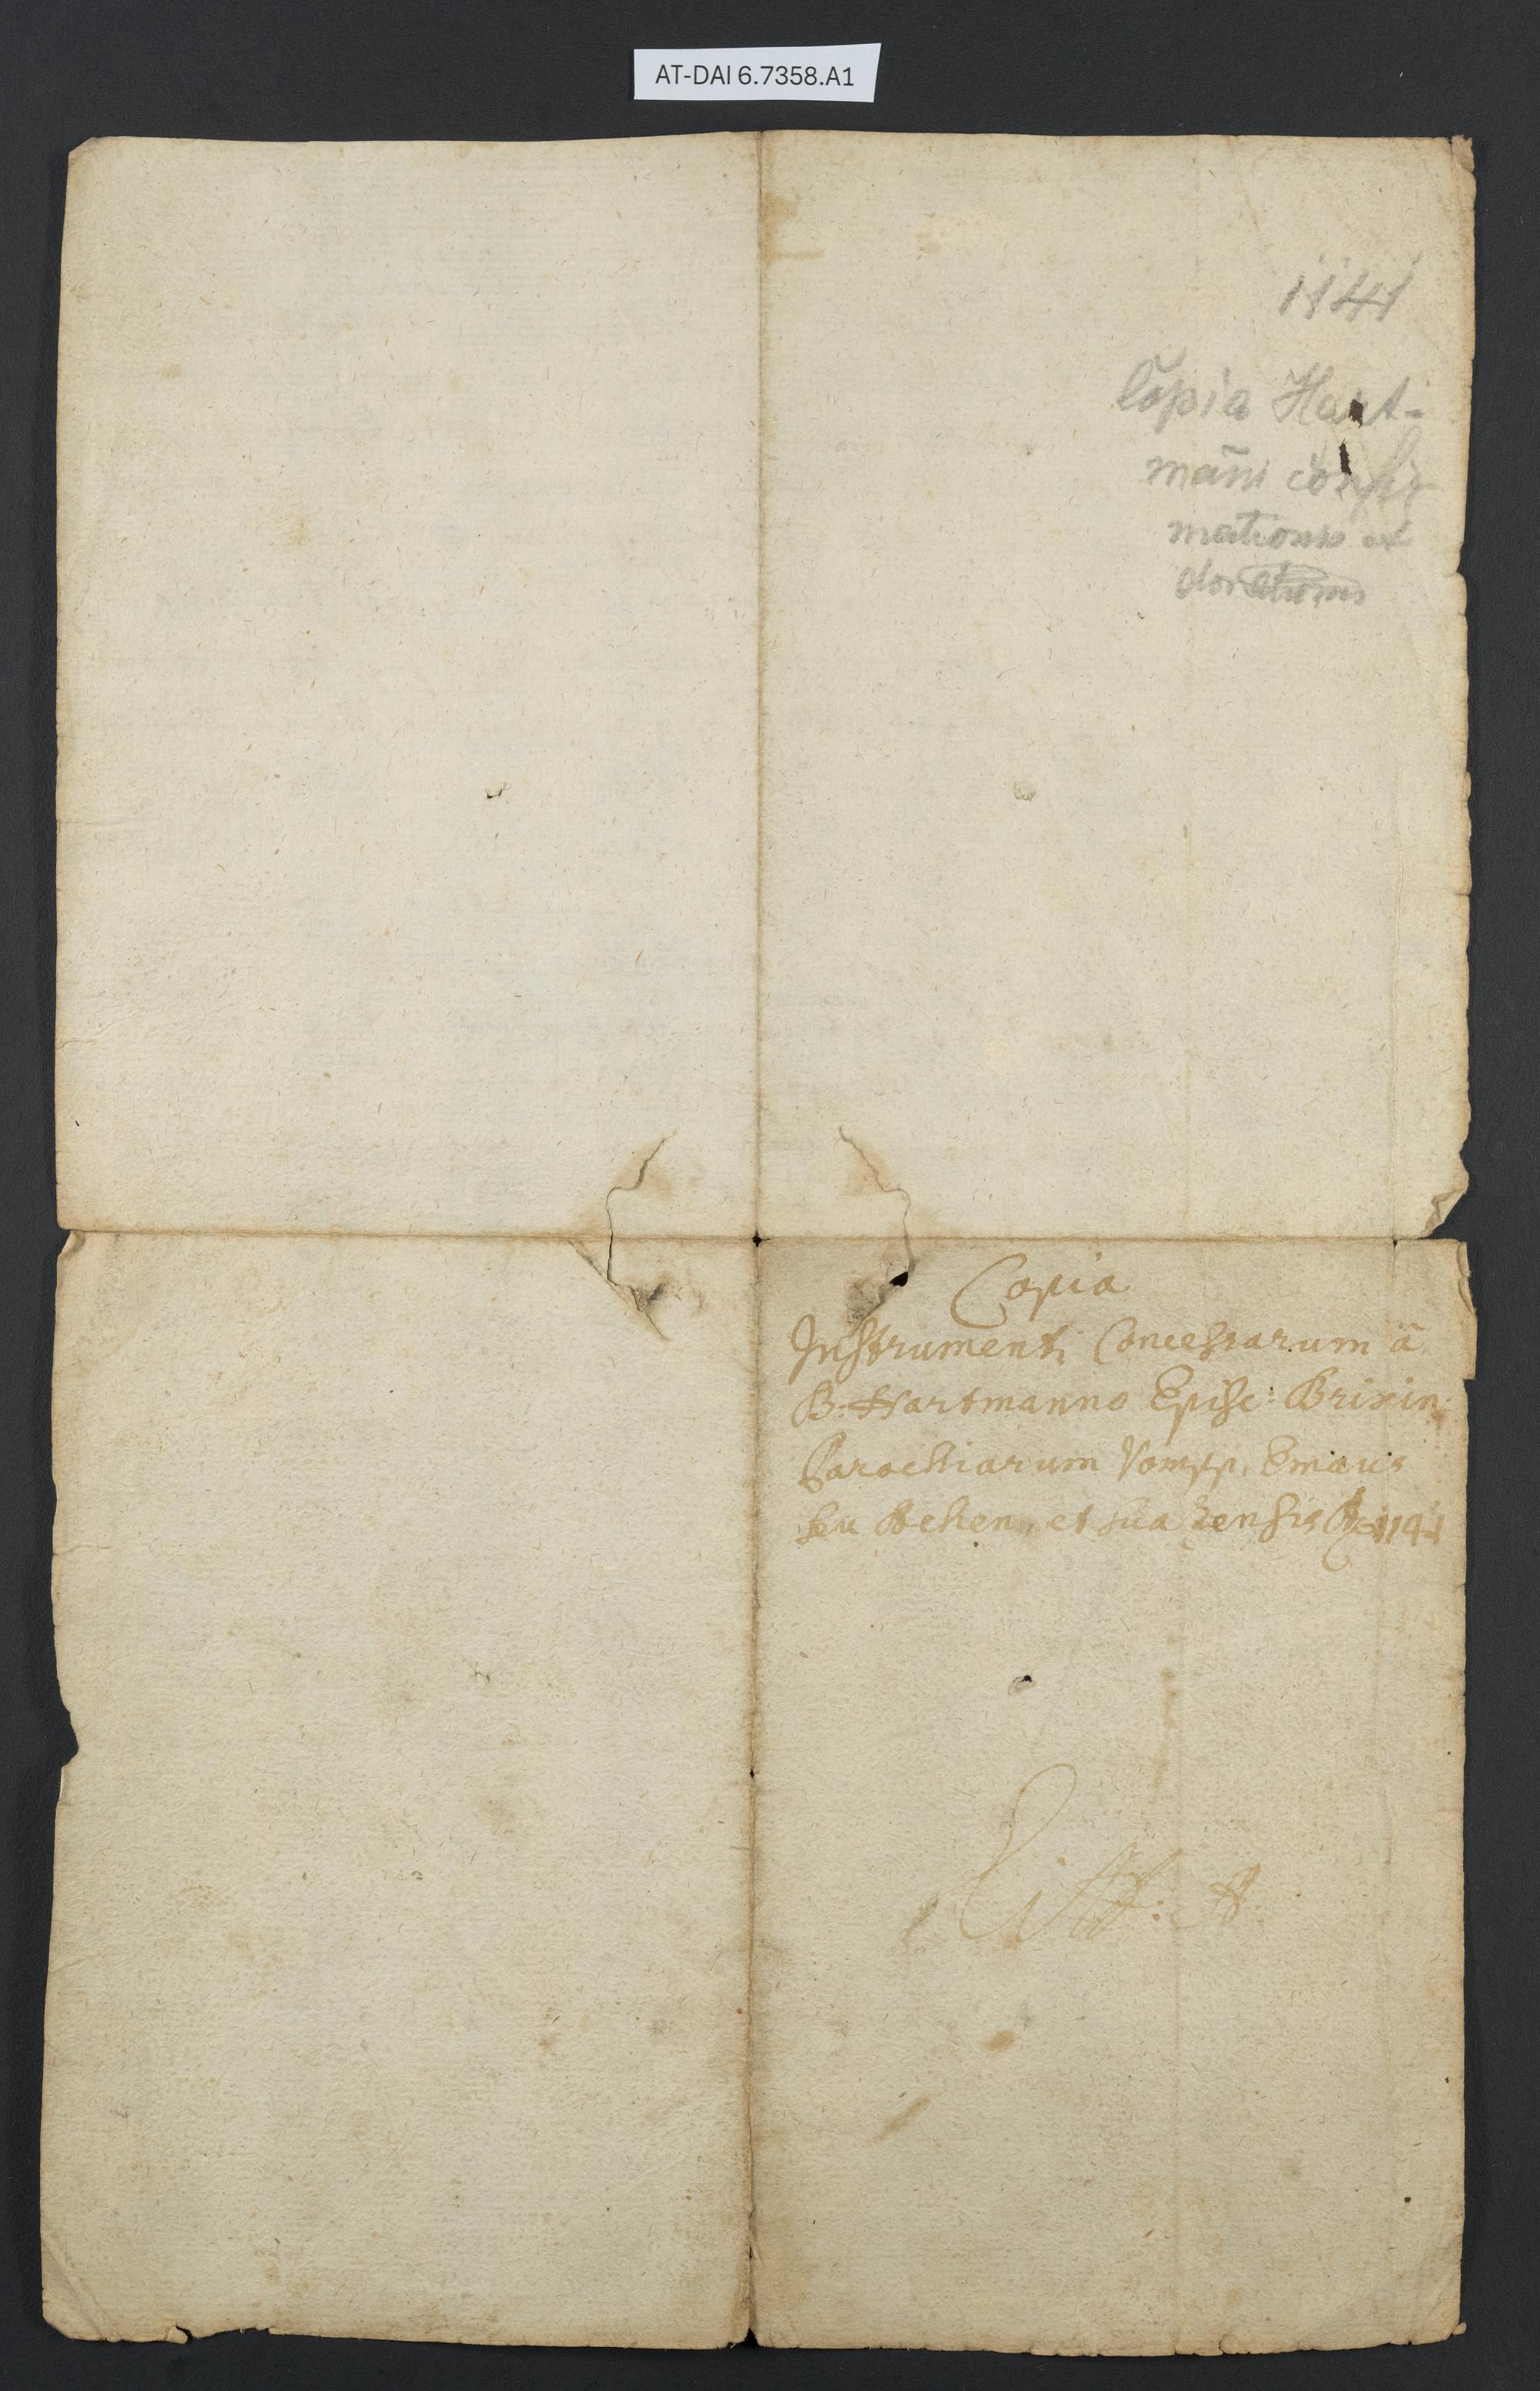 AT-DAI 6.7358.A1
1141
Copia Hart-
man̄i confir
mationis et
donationis
Copia
Instrumenti Concessarum à
B: Hartmanno Episc: Brixin:
Parochiarum Vomp, Emaus
seu Achen, et suazensis 1141
Litt: A.